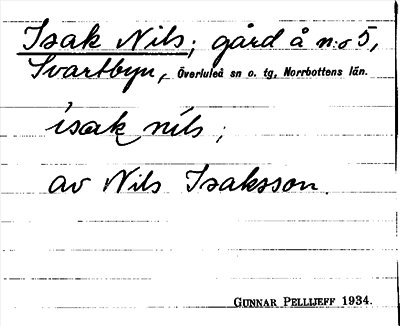 Isak Nils; gård å n:o 5,
Svartbyn, Överluleå sn o. tg, Norrbottens län.
isak nils ;
av Nils Isaksson.
GUNNAR PELLIJEFF 1934.